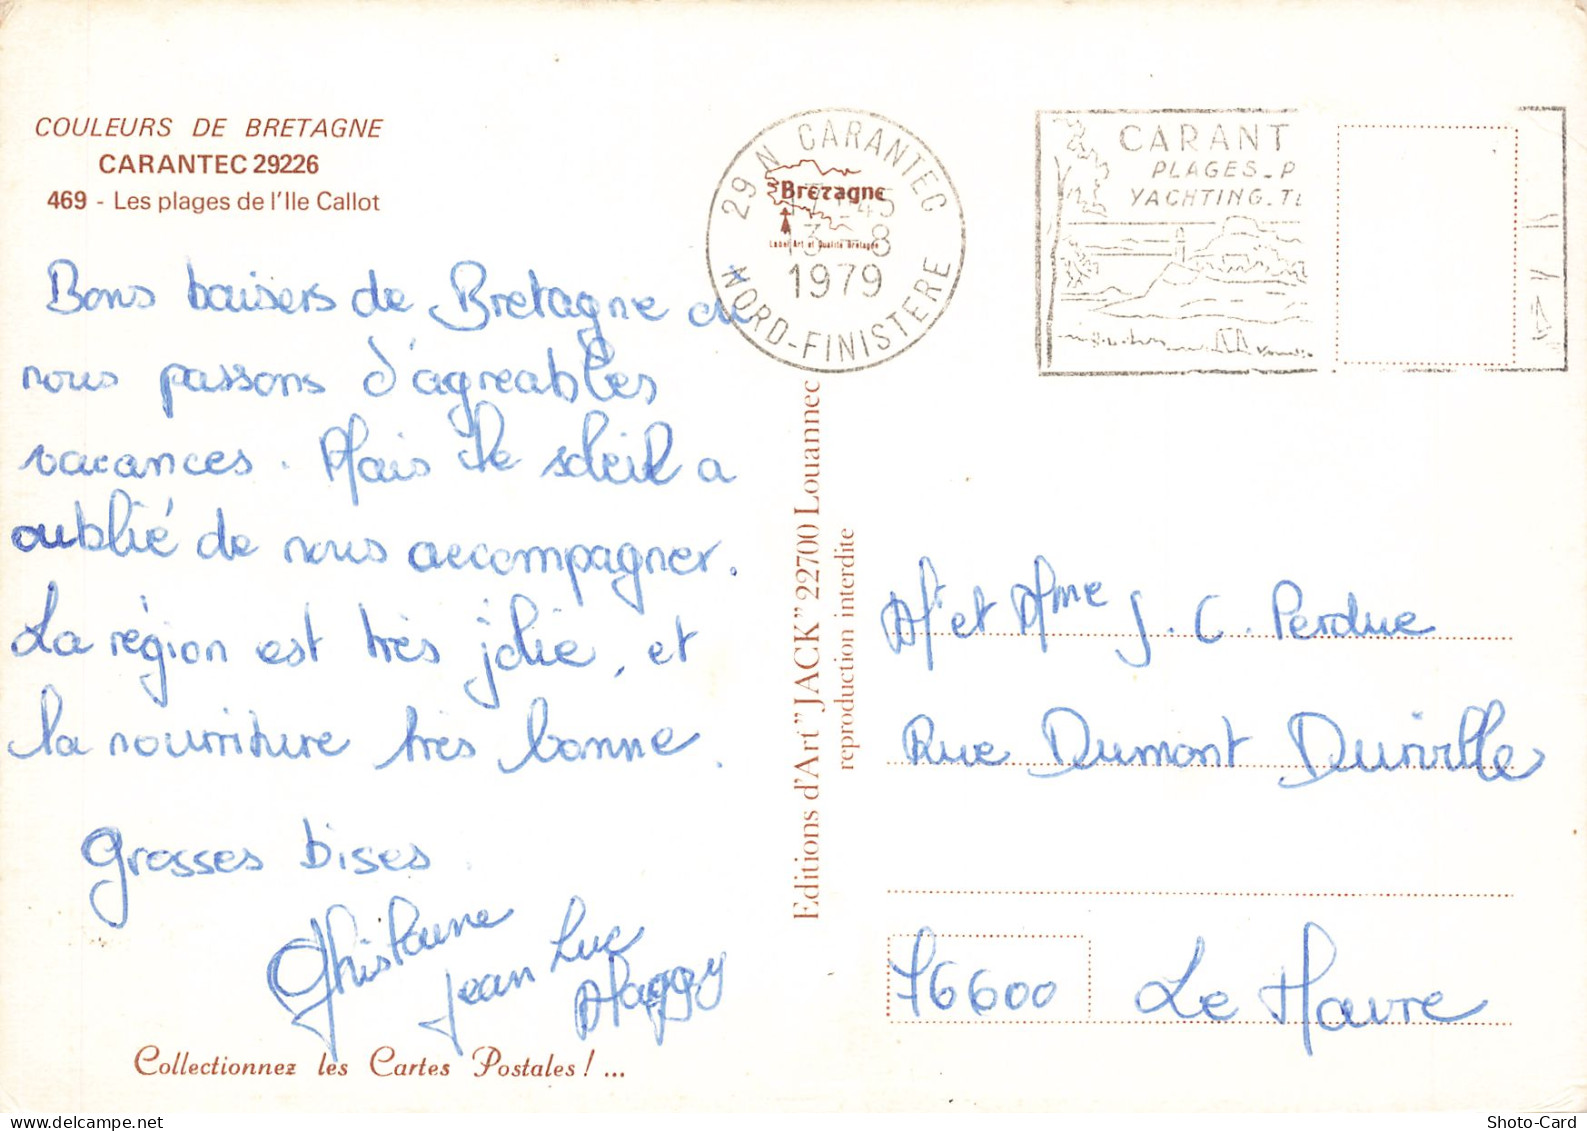 COULEURS DE BRETAGNE
CARANTEC 29226
469 - Les plages de l'Ile Callot
Bons baisers de Bretagne où
nous passons d'agréables
vacances. Mais le soleil a
oublié de nous accompagner.
La région est très jolie, et
la nourriture très bonne.
Grosses bises
Ghislaine
Jean Luc
Maggy
Collectionnez les Cartes Postales ! ...
29 N CARANTEC
Bretagne
Label Art et Qualité Bretagne
13 - 8
1979
NORD-FINISTERE
CARANT
PLAGES - P
YACHTING - T
Editions d'Art "JACK" 22700 Louannec
reproduction interdite
Mr et Mme J. C. Perdue
Rue Dumont Durville
76600 Le Havre
Shoto-Card